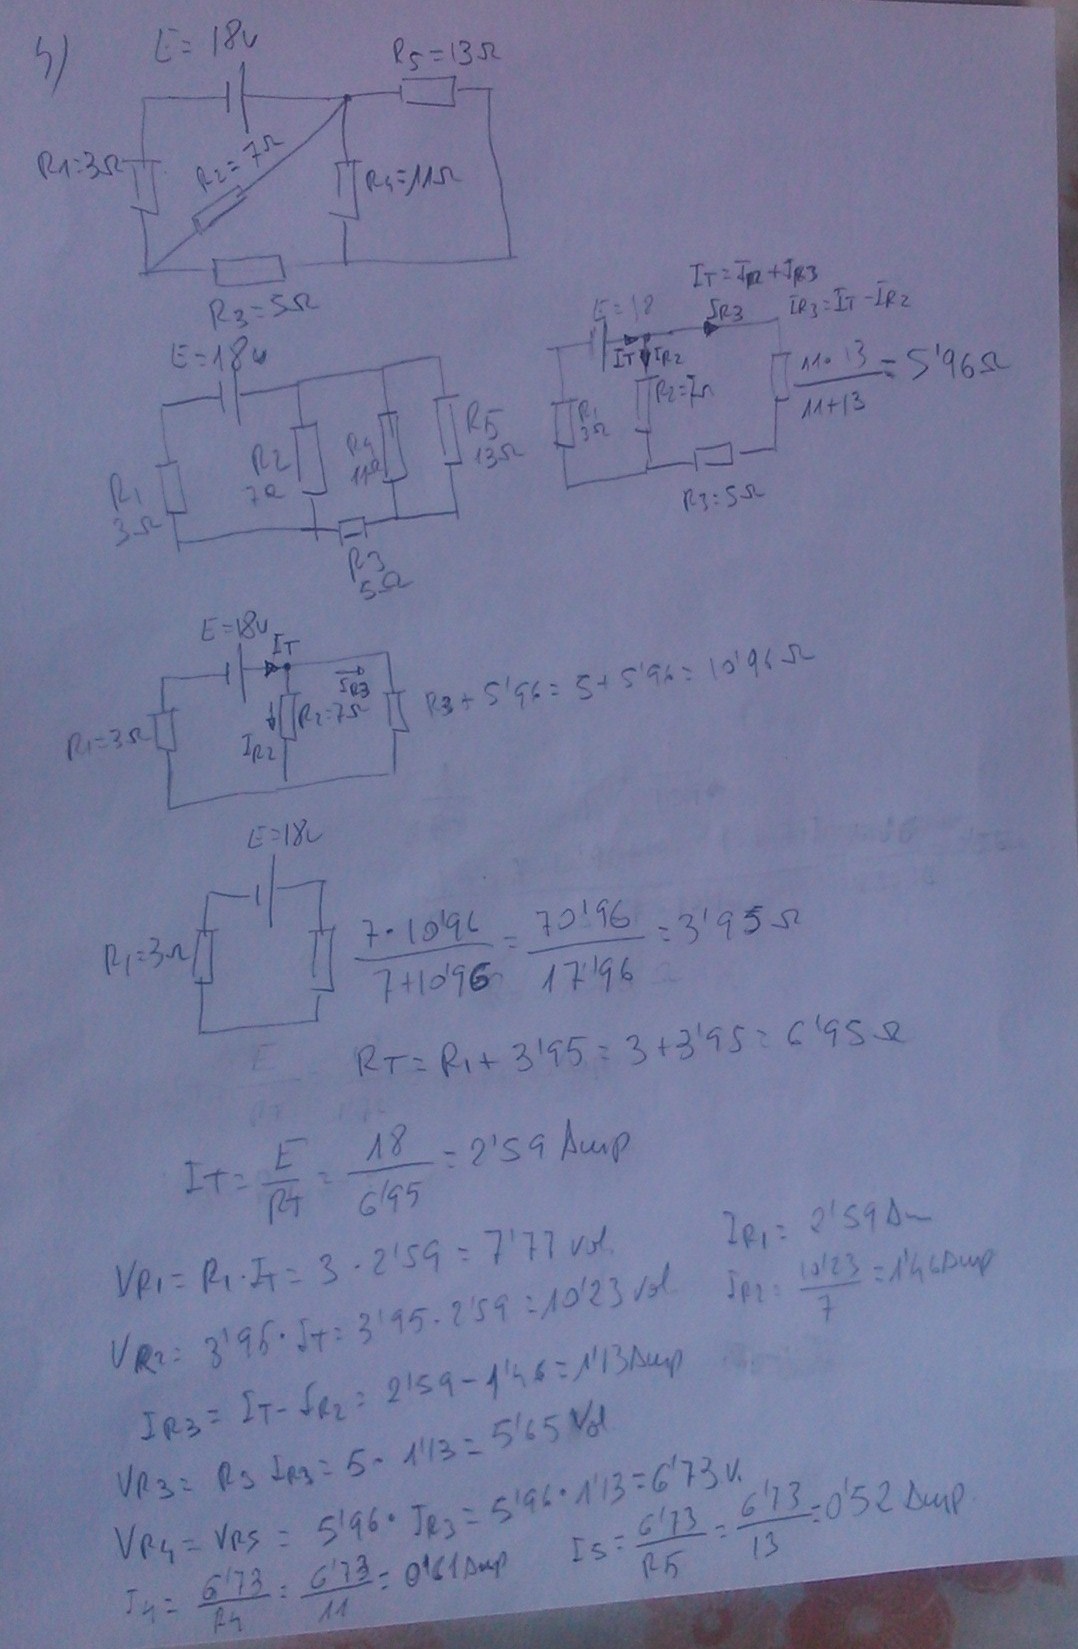 4)
E = 18v
R5=13Ω
R1=3Ω
R2=7Ω
R4=11Ω
R3=5Ω
E=18v
R1
3Ω
R2
7Ω
R4
11Ω
R5
13Ω
R3
5Ω
IT=IR2+IR3
E=18
IR3
IR3=IT-IR2
IT
IR2
R1
3Ω
R2=7Ω
11·13/11+13 = 5'96Ω
R3=5Ω
E=18v
IT
IR3
R1=3Ω
R2=7Ω
IR2
R3+5'96=5+5'96=10'96Ω
E=18v
R1=3Ω
7·10'96/7+10'96 = 70'96/17'96 = 3'95Ω
RT=R1+3'95=3+3'95=6'95Ω
IT=E/RT=18/6'95=2'59 Amp
VR1=R1·IT=3·2'59=7'77 vol.
IR1=2'59 Am
VR2=3'95·IT=3'95·2'59=10'23 vol
IR2=10'23/7=1'46 Amp
IR3=IT-IR2=2'59-1'46=1'13 Amp
VR3=R3 IR3=5·1'13=5'65 Vol
VR4=VR5=5'96·IR3=5'96·1'13=6'73 V.
I4=6'73/R4=6'73/11=0'61 Amp
I5=6'73/R5=6'73/13=0'52 Amp.